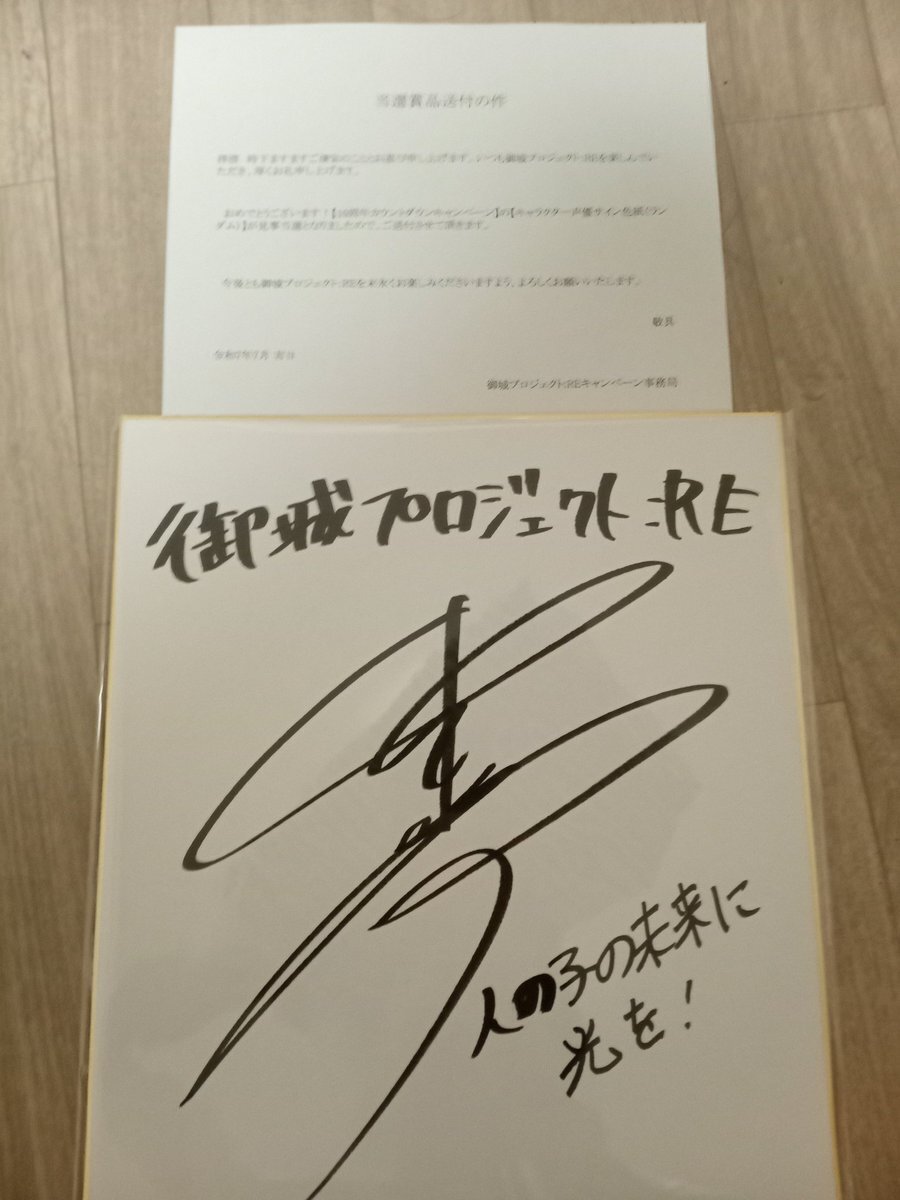 当選賞品送付の件
拝啓 時下ますますご清栄のこととお喜び申し上げます。いつも御城プロジェクト:REを楽しんでい
ただき、厚くお礼申し上げます。
おめでとうございます!【10周年カウントダウンキャンペーン】の【キャラクター声優サイン色紙(ラン
ダム)】が見事当選となりましたので、ご送付させて頂きます。
今後とも御城プロジェクト:REを末永くお楽しみくださいますよう、よろしくお願いいたします。
敬具
令和7年7月 吉日
御城プロジェクト:REキャンペーン事務局
御城プロジェクト:RE
人の子の未来に
光を!